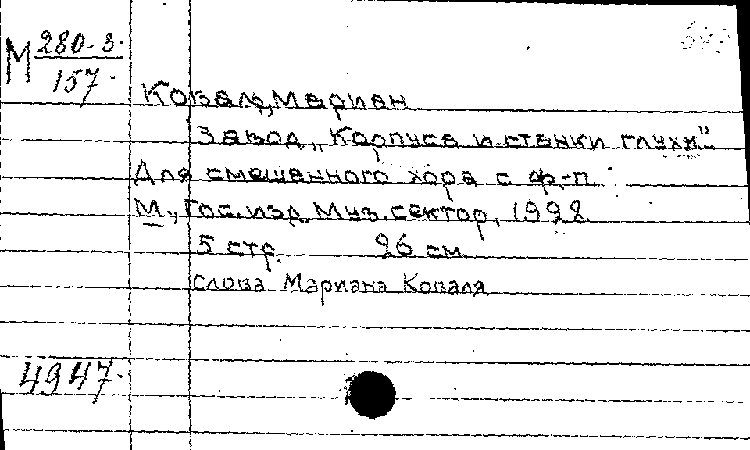 М 280-3.
157.
Коваль, Мариан
Завод „Корпуса и станки глухи"
Для смешанного хора с ф.-п.
М., Гос. изд. Муз. сектор, 1928
5 стр. 26 см.
слова Мариана Коваля
4947.